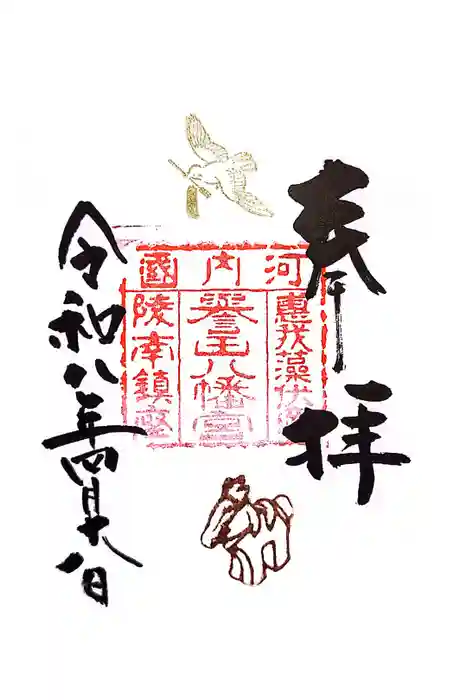 奉拝
河内國
惠我藻伏崗
譽田八幡宮
陵南鎮座
令和八年四月十九日